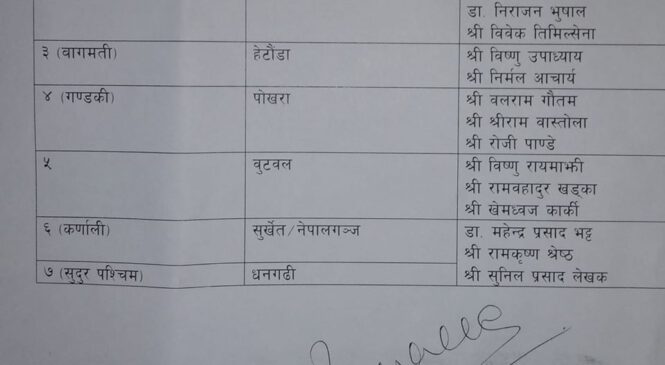 डा. निराजन भुषाल
श्री विवेक तिमिल्सेना
३ (वागमती) हेटौंडा श्री विष्णु उपाध्याय
श्री निर्मल आचार्य
४ (गण्डकी) पोखरा श्री वलराम गौतम
श्री श्रीराम वास्तोला
श्री रोजी पाण्डे
५ वुटवल श्री विष्णु रायमाझी
श्री रामवहादुर खड्का
श्री खेमध्वज कार्की
६ (कर्णाली) सुर्खेत/नेपालगञ्ज डा. महेन्द्र प्रसाद भट्ट
श्री रामकृष्ण श्रेष्ठ
७ (सुदुर पश्चिम) धनगढी श्री सुनिल प्रसाद लेखक